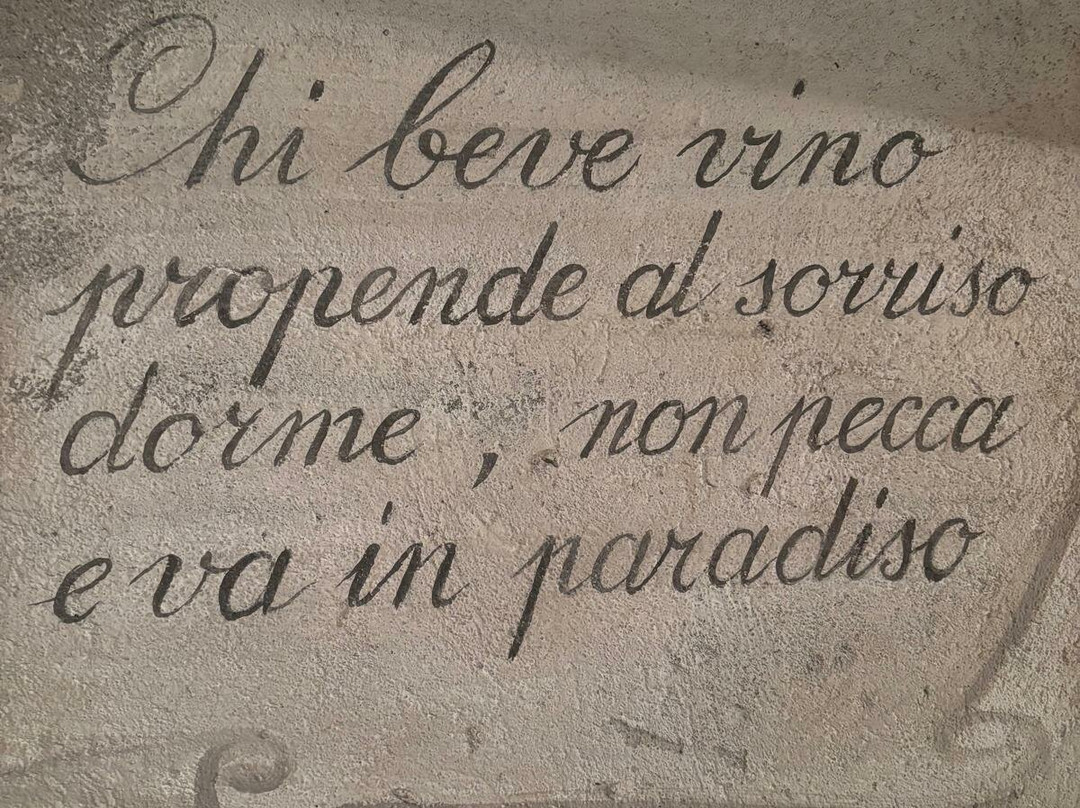 Chi beve vino
propende al sorriso
dorme, non pecca
e va in paradiso